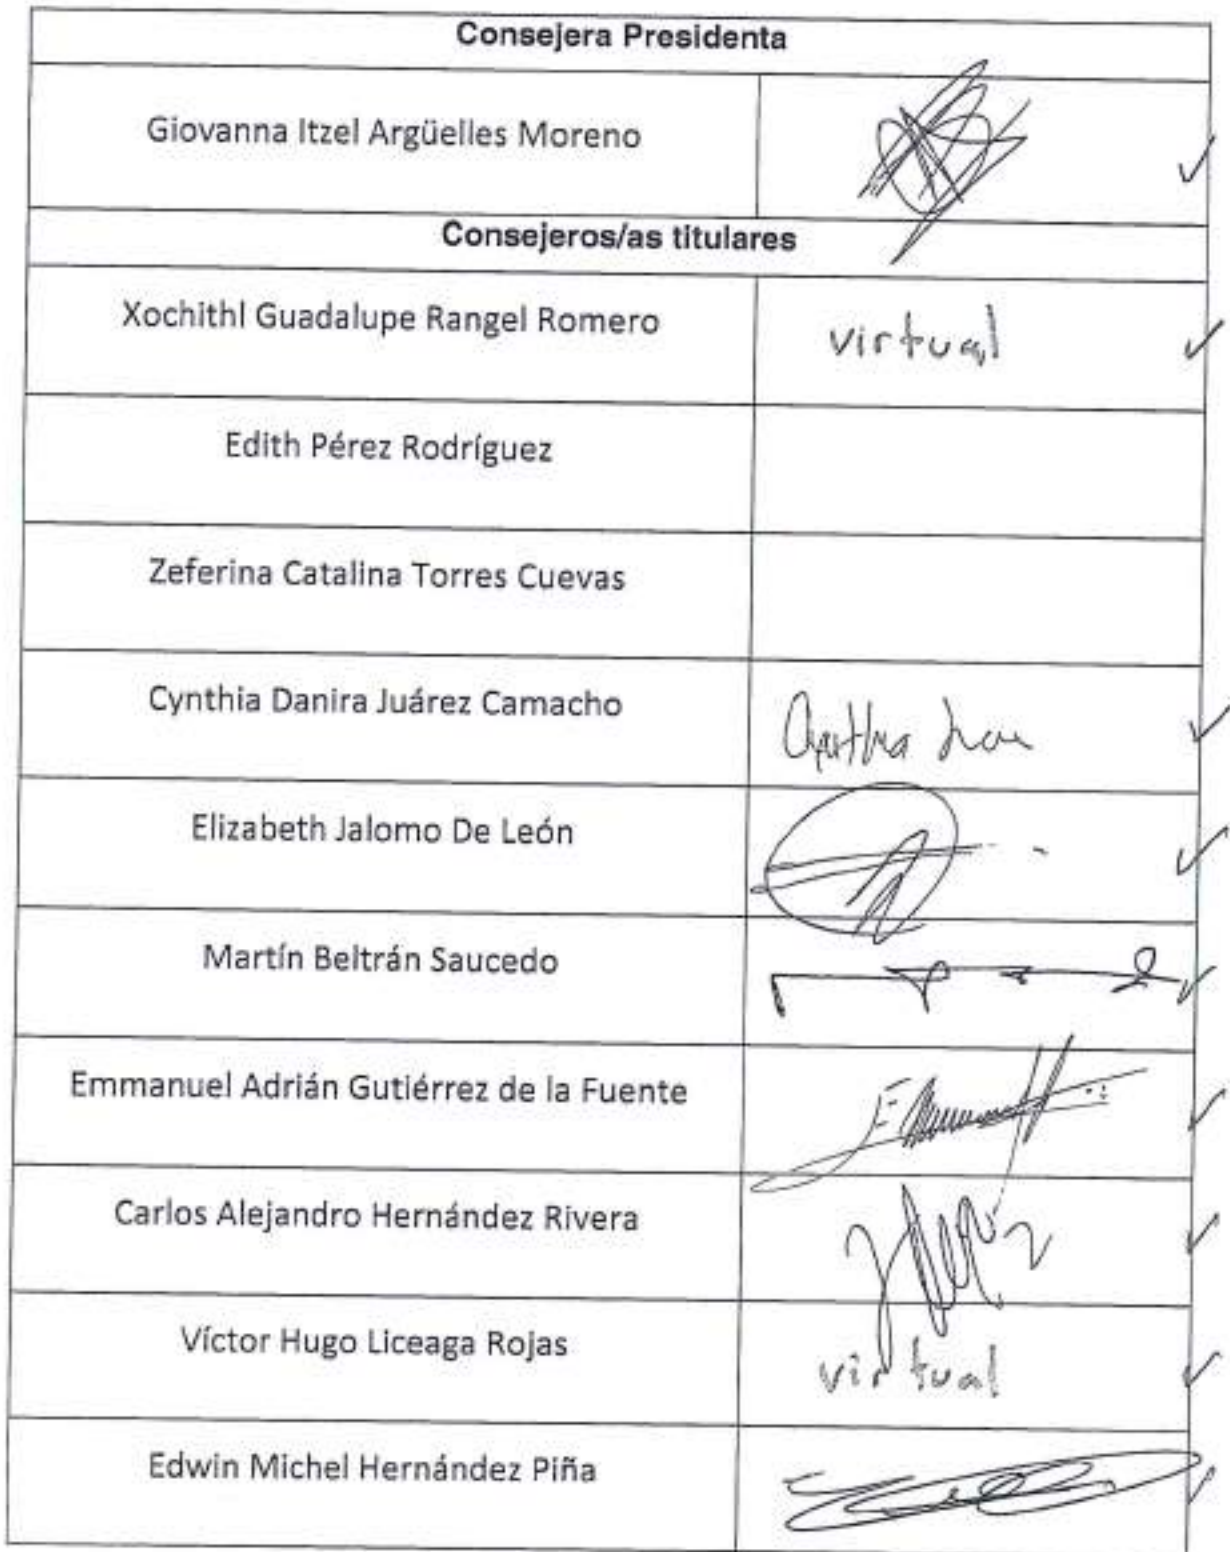 Consejera Presidenta
Giovanna Itzel Argüelles Moreno
Consejeros/as titulares
Xochithl Guadalupe Rangel Romero virtual
Edith Pérez Rodríguez
Zeferina Catalina Torres Cuevas
Cynthia Danira Juárez Camacho
Elizabeth Jalomo De León
Martín Beltrán Saucedo
Emmanuel Adrián Gutiérrez de la Fuente
Carlos Alejandro Hernández Rivera
Víctor Hugo Liceaga Rojas virtual
Edwin Michel Hernández Piña